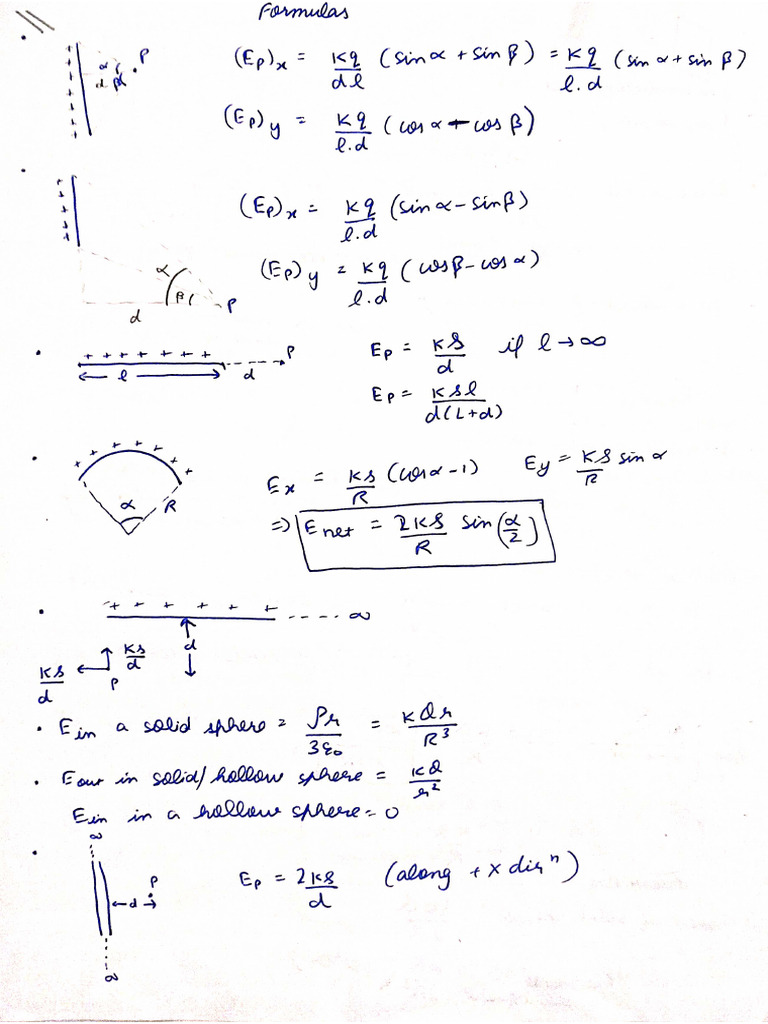 Formulas
α
β
d
P
(Ep)x = Kq/dl (sin α + sin β) = Kq/l.d (sin α + sin β)
(Ep)y = Kq/l.d (cos α - cos β)
(Ep)x = Kq/l.d (sin α - sin β)
(Ep)y = Kq/l.d (cos β - cos α)
α
β
P
d
+ + + + + + +
P
l
d
Ep = Kλ/d if l → ∞
Ep = Kλl/d(L+d)
α
R
Ex = Kλ/R (cos α - 1) Ey = Kλ/R sin α
⇒ Enet = 2Kλ/R sin (α/2)
+ + + + + + ∞
d
Kλ/d
Kλ/d
P
• Ein a solid sphere = ρr/3ε₀ = KQr/R³
• Eout in solid/hollow sphere = KQ/r²
Ein in a hollow sphere = 0
∞
P
d
∞
Ep = 2Kλ/d (along + x dirⁿ)